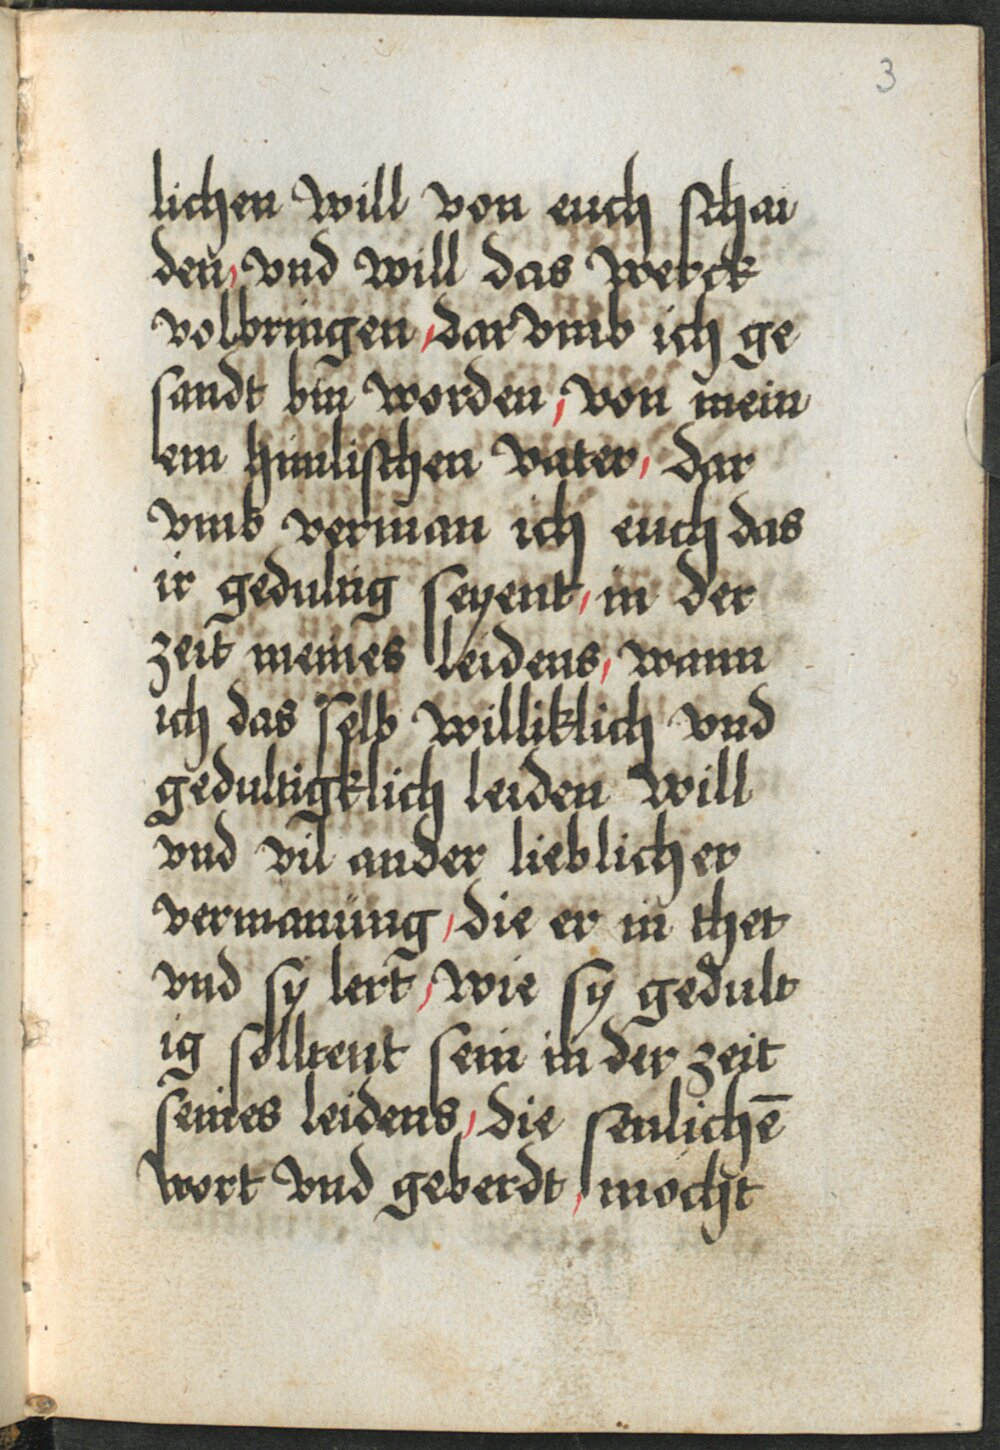 3
lichen will von euch schai
den, vnd will das werck
volbringen, dar vmb ich ge
sandt bin worden, von mein
em himlischen vater, dar
vmb verman ich euch das
ir gedultig seyent, in der
zeit meines leidens, wann
ich das selb williklich vnd
gedultigklich leiden will
vnd vil ander lieblicher
vermanũng, die er in thet
vnd sy lert, wie sy gedult
ig solltent sein in der zeit
seines leidens, die senlichē
wort vnd geberdt, mocht